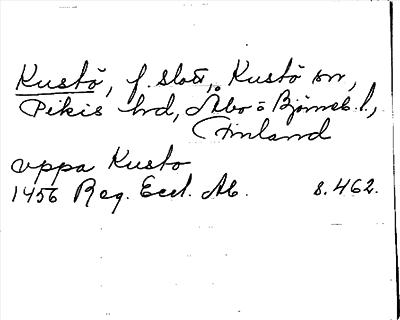 Kustö, f. slott, Kustö sn,
Pikis hd, Åbo = Björneb. l.,
Finland
uppa Kusto
1456 Reg. Eccl. Ab. s. 462.